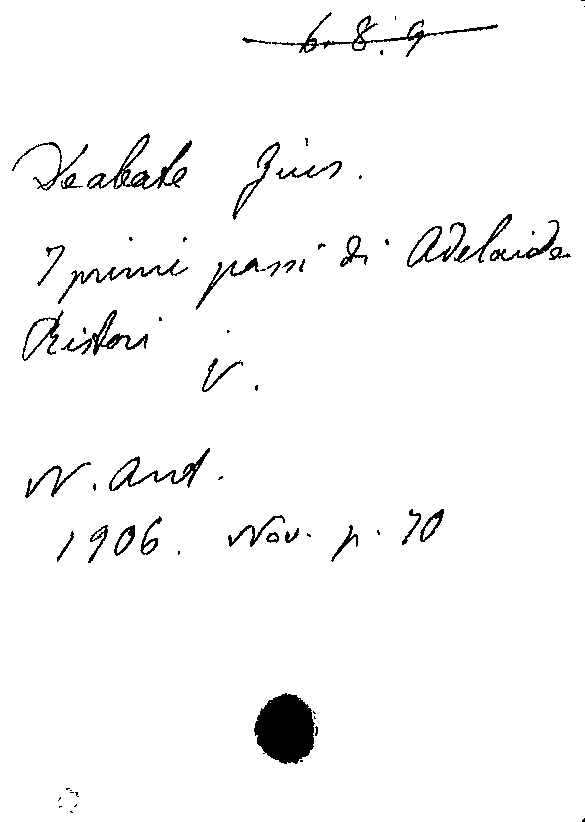 6.8.9
Deabate Gius.
I primi passi di Adelaide
Ristori
V.
N. Ant.
1906. Nov. p. 70